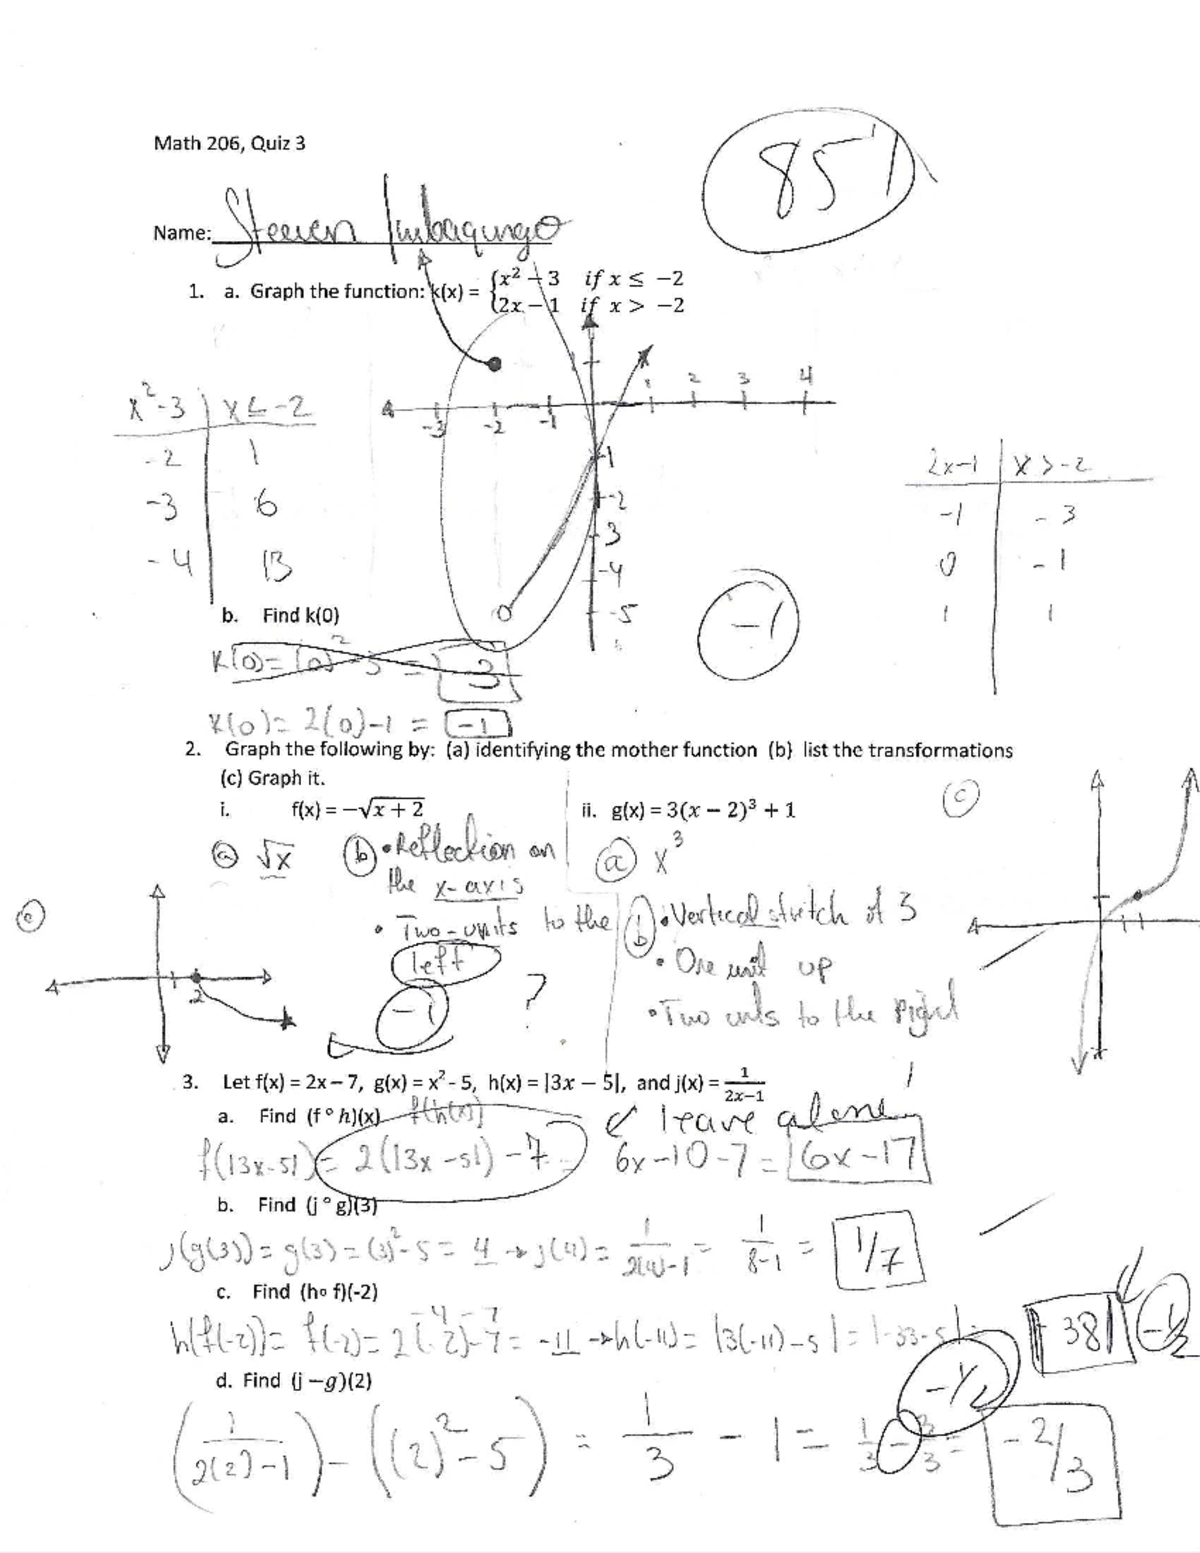 Math 206, Quiz 3
85%
Name: Steeven Imbaquingo
1. a. Graph the function: k(x) = {x² – 3 if x ≤ −2
{2x − 1 if x > −2
1 2 3 4
-3 -2 -1
-1
-2
-3
-4
-5
x²-3 | x ≤ -2
-2 | 1
-3 | 6
-4 | 13
2x-1 | x > -2
-1 | -3
0 | -1
1 | 1
b. Find k(0)
-1
k(0) = (0)² - 3 = 3
k(0) = 2(0)-1 = -1
2. Graph the following by: (a) identifying the mother function (b) list the transformations
(c) Graph it.
i. f(x) = −√x + 2 ii. g(x) = 3(x − 2)³ + 1
(a) √x (b) • Reflection on
the x-axis
• Two-units to the
left
-1 ?
(c)
2
(a) x³
(b) • Vertical stretch of 3
• One unit up
• Two units to the right
(c)
3. Let f(x) = 2x – 7, g(x) = x² - 5, h(x) = |3x − 5|, and j(x) = 1/2x−1
a. Find (f ° h)(x) f(h(x))
leave alone
f(|3x-5|) = 2(|3x-5|) -7 = 6x-10-7 = 6x-17
b. Find (j ° g)(3)
j(g(3)) = g(3) = (3)²-5 = 4 → j(4) = 1/2(4)-1 = 1/8-1 = 1/7
c. Find (h∘ f)(-2)
-4 - 7
h(f(-2)) = f(-2) = 2(-2)-7 = -11 → h(-11) = |3(-11)-5| = |-33-5| = 38 -1/2
d. Find (j −g)(2)
-1/2
(1/2(2)-1) - ((2)²-5) = 1/3 - 1 = 1/3 - 3/3 = -2/3